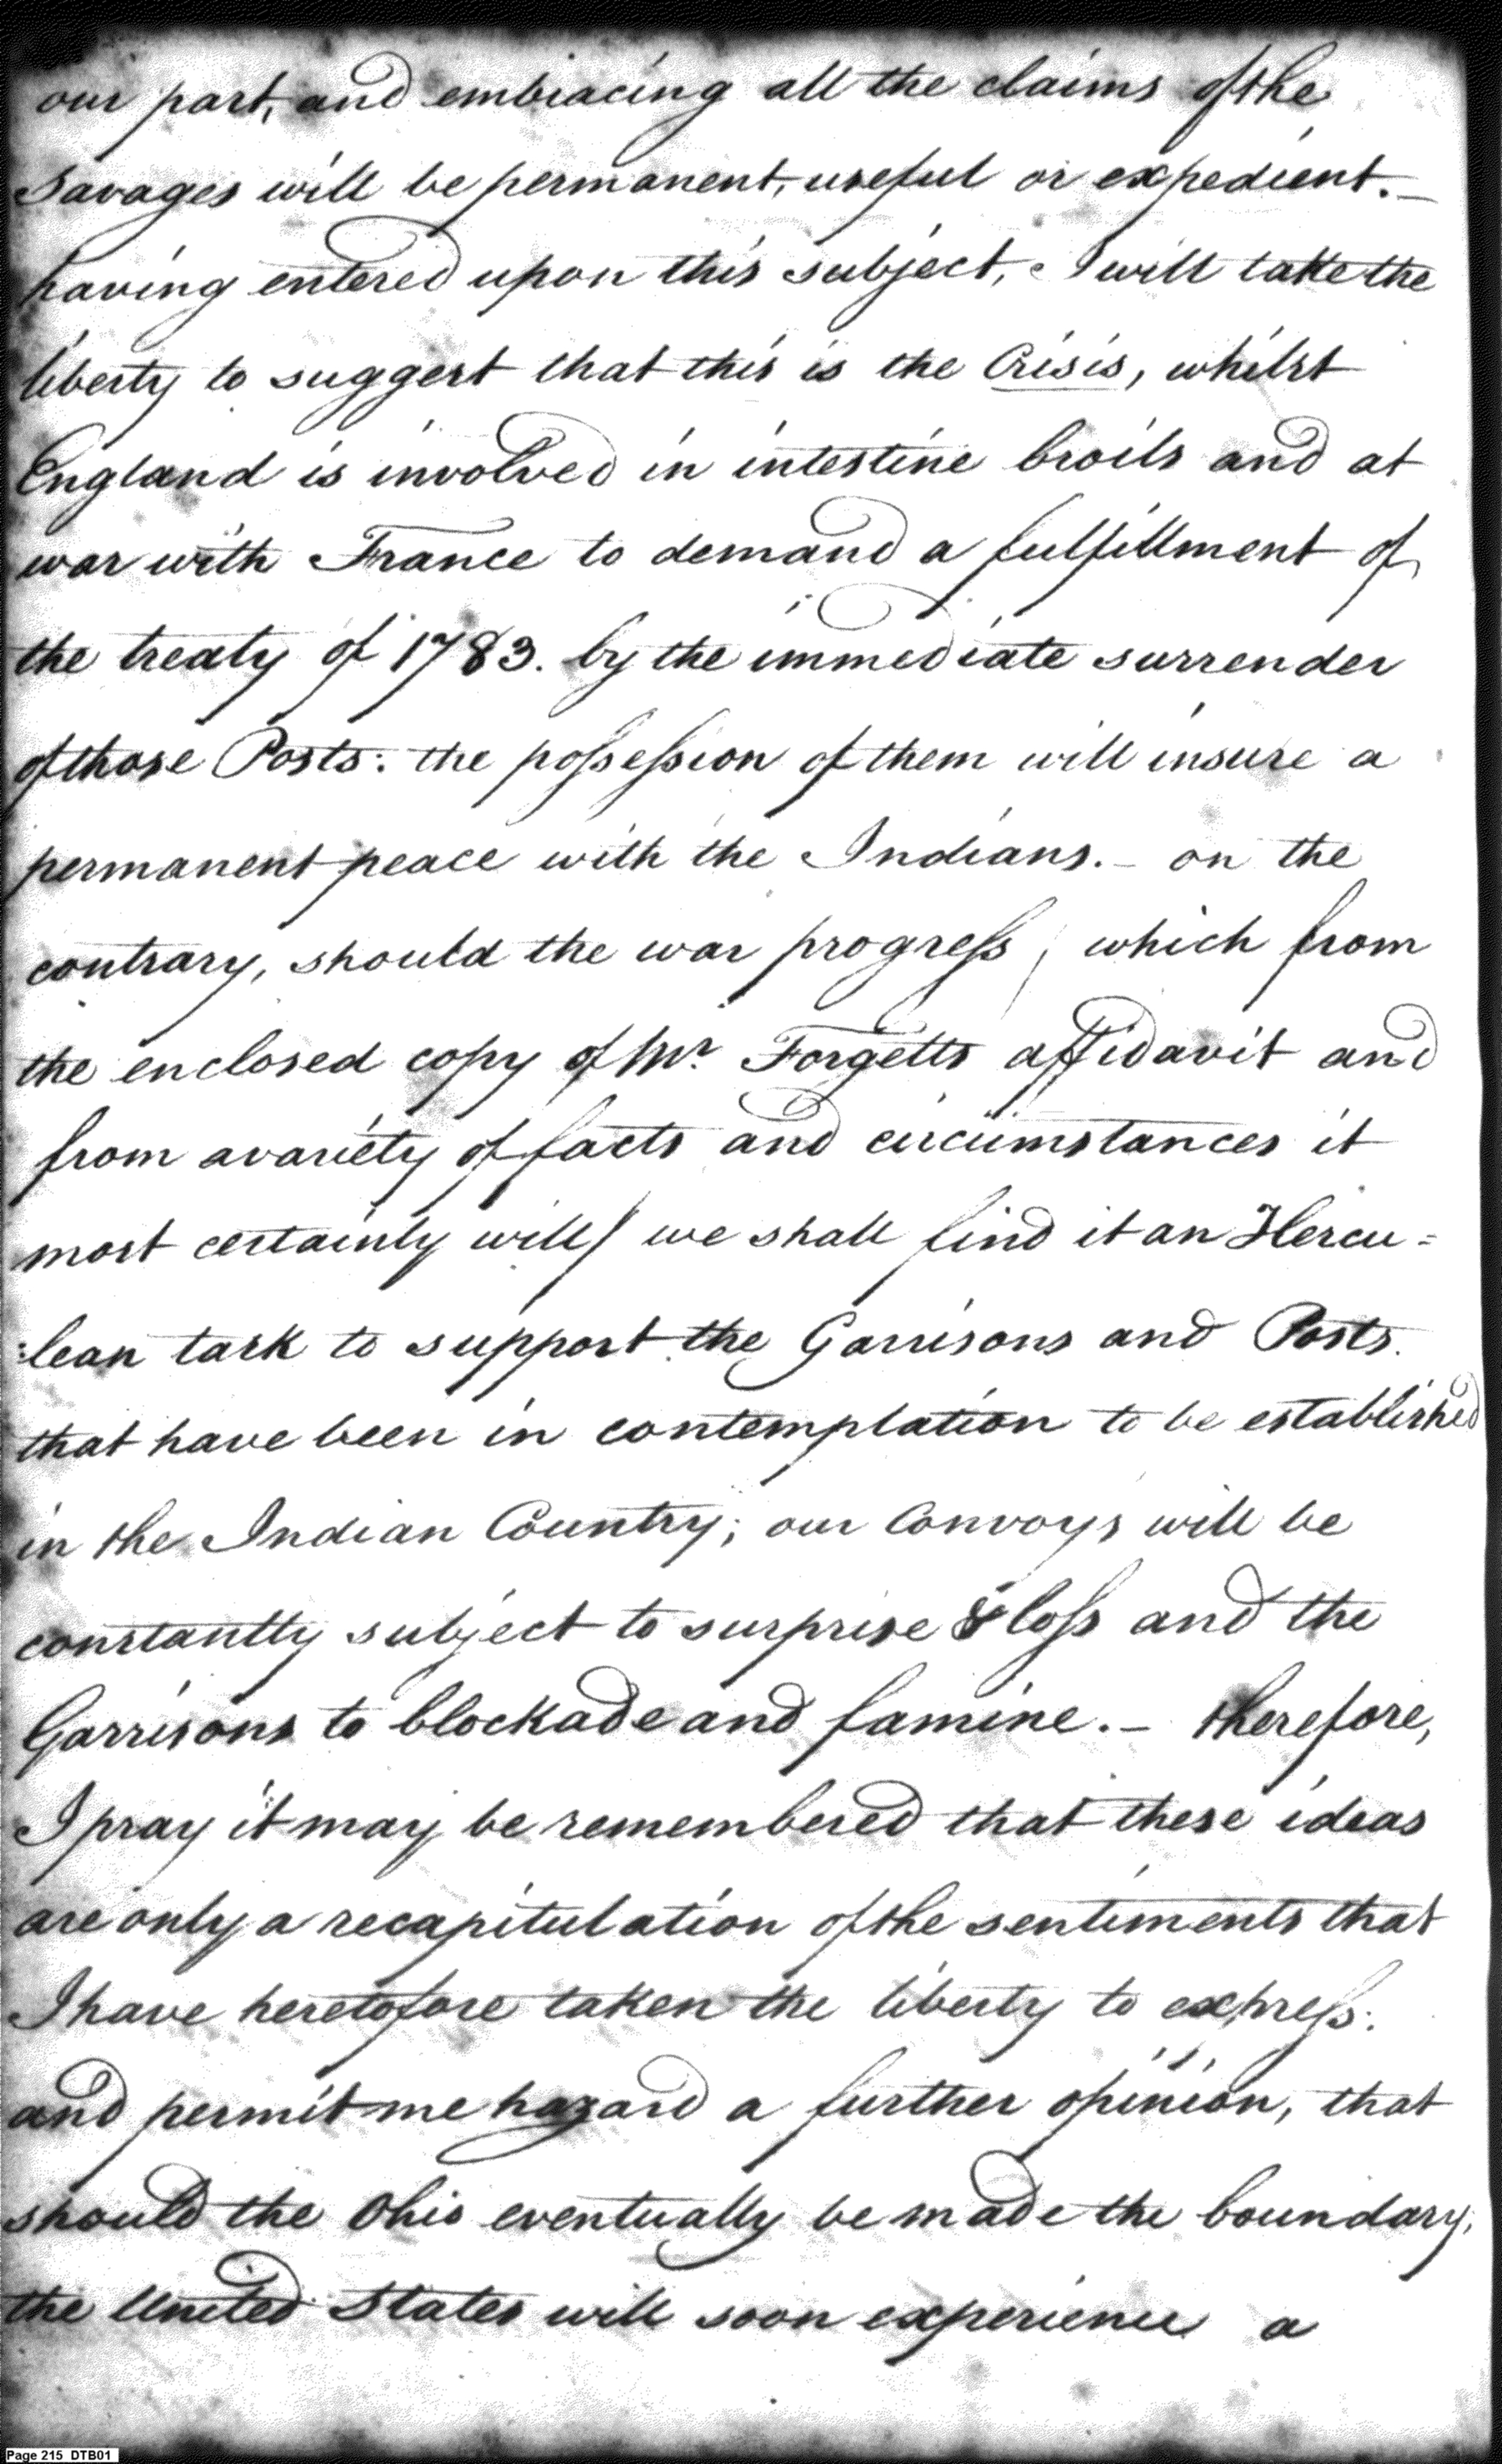 our part, and embracing all the claims of the
Savages will be permanent, useful or expedient. —
having entered upon this subject, I will take the
liberty to suggest that this is the Crisis, whilst
England is involved in intestine broils and at
war with France to demand a fulfillment of
the treaty of 1783. by the immediate surrender
of those Posts: the possession of them will insure a
permanent peace with the Indians. – on the
contrary, should the war progress / which from
the enclosed copy of Mr. Forgetts affidavit and
from a variety of facts and circumstances it
most certainly will / we shall find it an Hercu=
=lean task to support the Garrisons and Posts.
that have been in contemplation to be established
in the Indian Country; our Convoys will be
constantly subject to surprise & loss and the
Garrisons to blockade and famine. – therefore,
I pray it may be remembered that these ideas
are only a recapitulation of the sentiments that
I have heretofore taken the liberty to express:
and permit me hazard a further opinion, that
should the Ohio eventually be made the boundary,
the United States will soon experience a
Page 215 DTB01